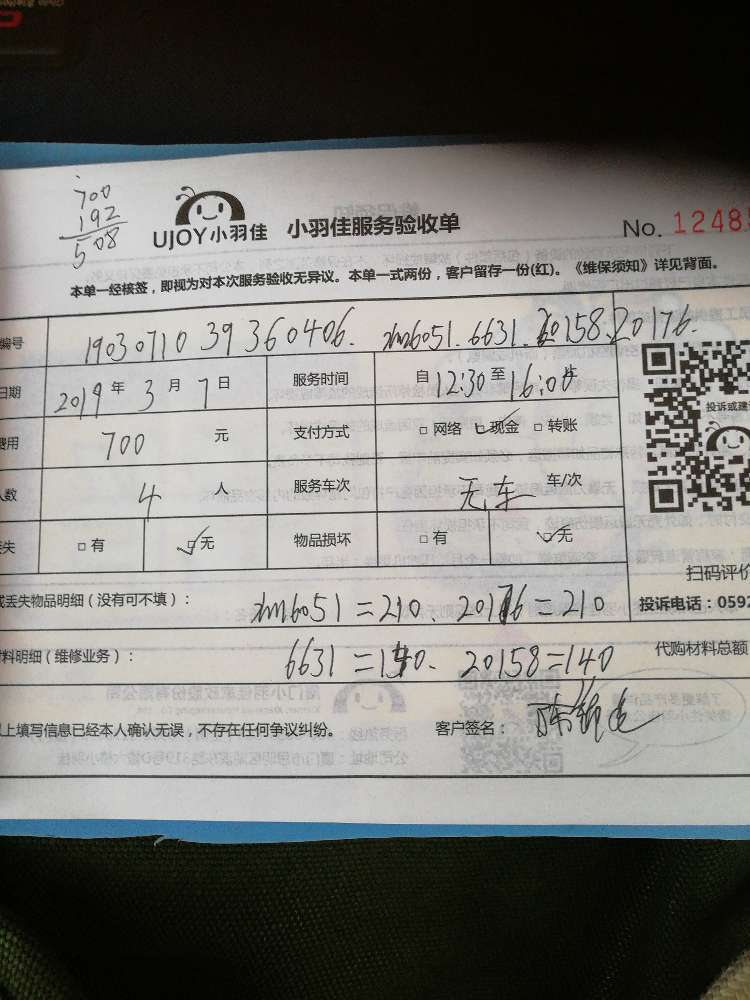 700
192
508
UJOY小羽佳 小羽佳服务验收单
No. 1248
本单一经核签，即视为对本次服务验收无异议。本单一式两份，客户留存一份(红)。《维保须知》详见背面。
编号 1903071039360406. zm6051.6631.20158.20176.
日期 2019年3月7日 服务时间 自12:30至16:00
费用 700 元 支付方式 □网络 ☑现金 □转账
人数 4 人 服务车次 无车 车/次
丢失 □有 ☑无 物品损坏 □有 ☑无
投诉或建议
扫码评价
或丢失物品明细（没有可不填）： zm6051=210、20176=210
投诉电话：0592
材料明细（维修业务）： 6631=140、20158=140
代购材料总额
以上填写信息已经本人确认无误，不存在任何争议纠纷。 客户签名：